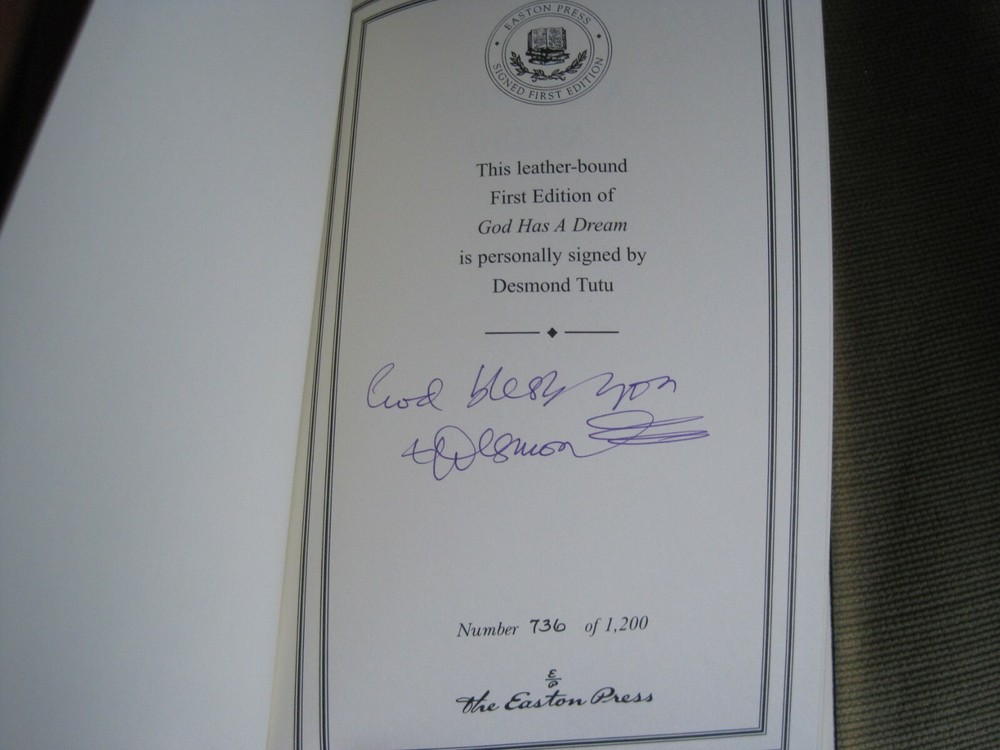 EASTON PRESS
SIGNED FIRST EDITION
This leather-bound
First Edition of
God Has A Dream
is personally signed by
Desmond Tutu
God bless you
+Desmond
Number 736 of 1,200
E/P
The Easton Press